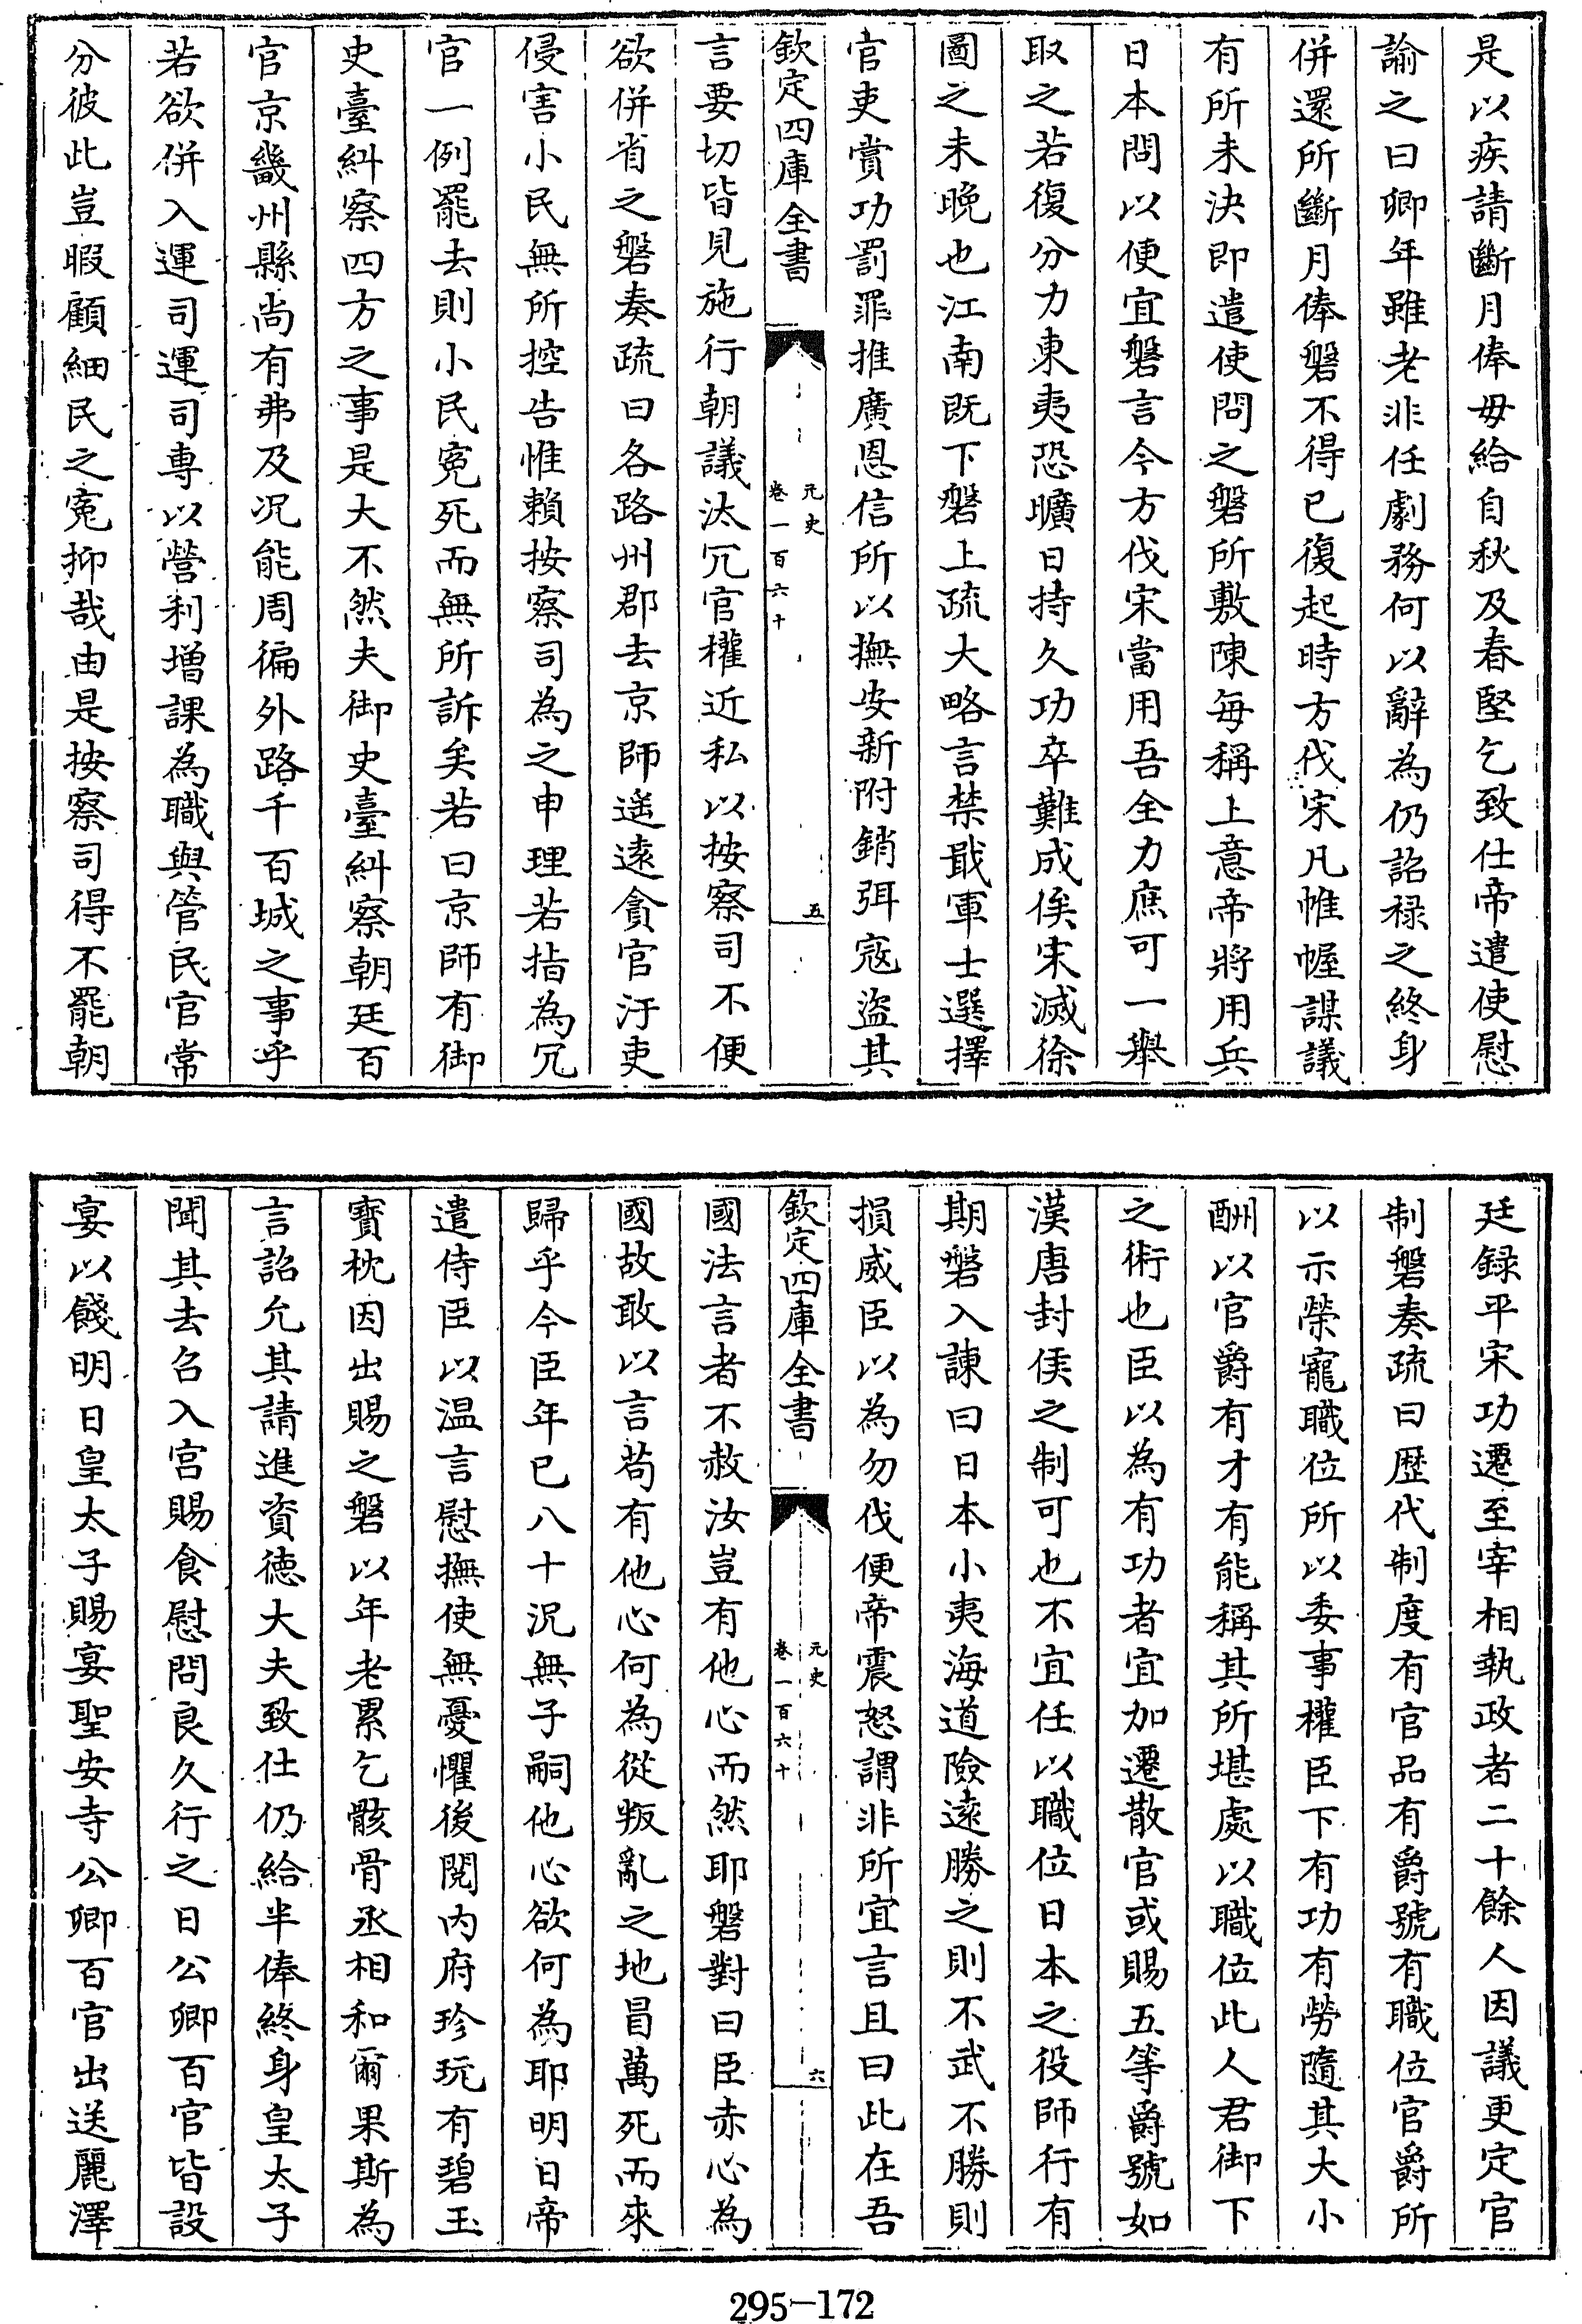 是以疾請斷月俸毋給自秋及春堅乞致仕帝遣使慰
諭之曰卿年雖老非任劇務何以辭為仍詔祿之終身
併還所斷月俸磐不得已復起時方伐宋凡帷幄謀議
有所未決即遣使問之磐所敷陳每稱上意帝將用兵
日本問以便宜磐言今方伐宋當用吾全力庶可一舉
取之若復分力東夷恐曠日持久功卒難成俟宋滅徐
圖之未晚也江南既下磐上疏大略言禁戢軍士選擇
官吏賞功罰罪推廣恩信所以撫安新附銷弭寇盜其
欽定四庫全書
元史
卷一百六十
五
言要切皆見施行朝議汰冗官權近私以按察司不便
欲併省之磐奏疏曰各路州郡去京師遙遠貪官汙吏
侵害小民無所控告惟賴按察司為之申理若指為冗
官一例罷去則小民冤死而無所訴矣若曰京師有御
史臺糾察四方之事是大不然夫御史臺糾察朝廷百
官京畿州縣尚有弗及況能周徧外路千百城之事乎
若欲併入運司運司專以營利增課為職與管民官常
分彼此豈暇顧細民之冤抑哉由是按察司得不罷朝
廷録平宋功遷至宰相執政者二十餘人因議更定官
制磐奏疏曰歴代制度有官品有爵號有職位官爵所
以示榮寵職位所以委事權臣下有功有勞隨其大小
酬以官爵有才有能稱其所堪處以職位此人君御下
之術也臣以為有功者宜加遷散官或賜五等爵號如
漢唐封侯之制可也不宜任以職位日本之役師行有
期磐入諫曰日本小夷海道險遠勝之則不武不勝則
損威臣以為勿伐便帝震怒謂非所宜言且曰此在吾
欽定四庫全書
元史
卷一百六十
六
國法言者不赦汝豈有他心而然耶磐對曰臣赤心為
國故敢以言苟有他心何為從叛亂之地冒萬死而來
歸乎今臣年已八十況無子嗣他心欲何為耶明日帝
遣侍臣以温言慰撫使無憂懼後閱内府珍玩有碧玉
寳枕因出賜之磐以年老累乞骸骨丞相和爾果斯為
言詔允其請進資德大夫致仕仍給半俸終身皇太子
聞其去召入宮賜食慰問良久行之日公卿百官皆設
宴以餞明日皇太子賜宴聖安寺公卿百官出送麗澤
295-172